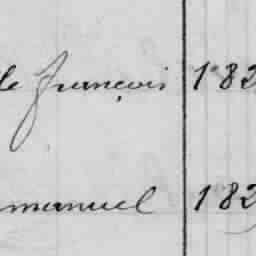 de françois 182
manuel 182